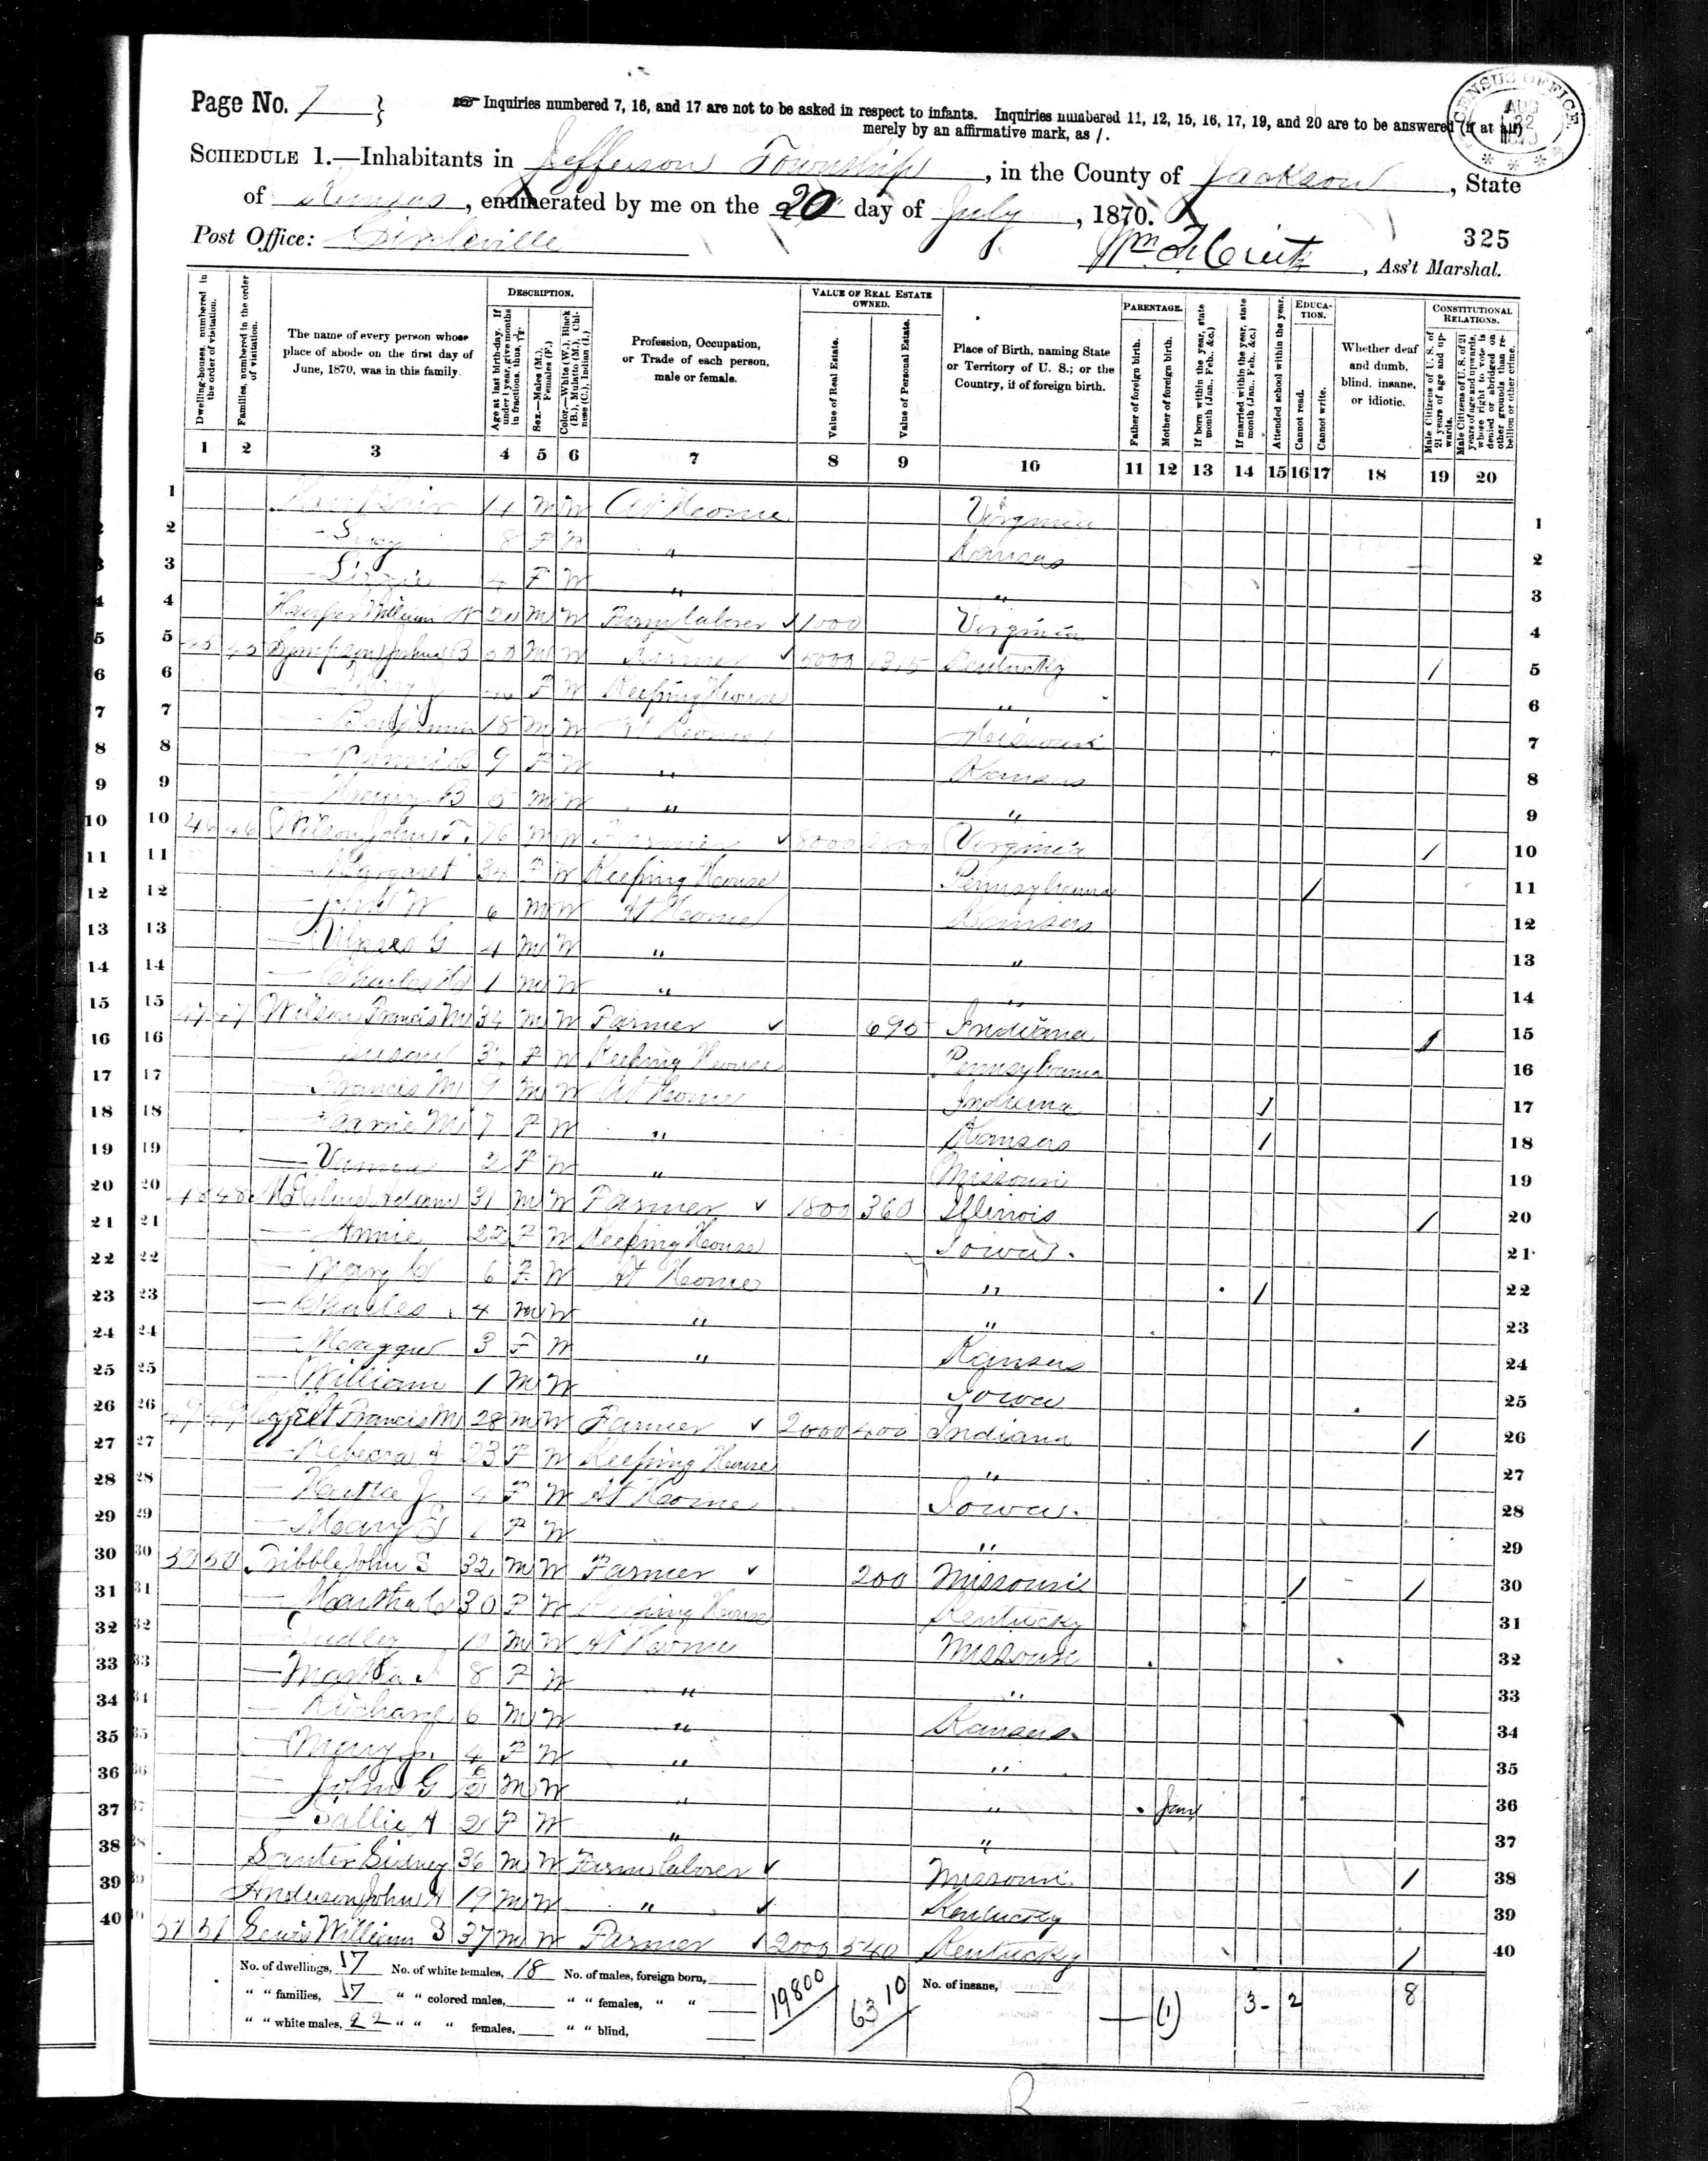 Page No. 7 }
Inquiries numbered 7, 16, and 17 are not to be asked in respect to infants. Inquiries numbered 11, 12, 15, 16, 17, 19, and 20 are to be answered (if at all)
merely by an affirmative mark, as /.
CENSUS OFFICE. AUG 22 1870
SCHEDULE 1.—Inhabitants in Jefferson Township, in the County of Jackson, State
of Kansas, enumerated by me on the 20 day of July, 1870.
Post Office: Circleville
325
Ass't Marshal.
Dwelling-houses, numbered in the order of visitation.
Families, numbered in the order of visitation.
The name of every person whose place of abode on the first day of June, 1870, was in this family.
DESCRIPTION.
Age at last birth-day. If under 1 year, give months in fractions, thus,
Sex.—Males (M.), Females (F.)
Color.—White (W.), Black (B.), Mulatto (M.), Chinese (C.), Indian (I.)
Profession, Occupation, or Trade of each person, male or female.
VALUE OF REAL ESTATE OWNED.
Value of Real Estate.
Value of Personal Estate.
Place of Birth, naming State or Territory of U. S.; or the Country, if of foreign birth.
PARENTAGE.
Father of foreign birth.
Mother of foreign birth.
If born within the year, state month (Jan., Feb., &c.)
If married within the year, state month (Jan., Feb., &c.)
Attended school within the year.
EDUCATION.
Cannot read.
Cannot write.
Whether deaf and dumb, blind, insane, or idiotic.
CONSTITUTIONAL RELATIONS.
Male Citizens of U. S. of 21 years of age and upwards.
Male Citizens of U. S. of 21 years of age and upwards, whose right to vote is denied or abridged on other grounds than rebellion or other crime.
1 2 3 4 5 6 7 8 9 10 11 12 13 14 15 16 17 18 19 20
1 14 M W At Home Virginia 1
2 8 F W " Kansas 2
3 Lizzie 4 F W " " 3
4 William M W Farm laborer 1000 Virginia 4
5 45 45 B M W Farmer 5000 1315 Kentucky / 5
6 F W Keeping House " 6
7 Benjamin 18 M W At Home Missouri 7
8 9 F W " Kansas 8
9 Henry B 5 M W " " 9
10 46 46 Wilson John T. M W Farmer 8000 2800 Virginia / 10
11 — Margaret 34 F W Keeping House Pennsylvania / 11
12 — John W 6 M W At Home Kansas 12
13 — Ulyses G 4 M W " " 13
14 — Charles H 1 M W " " 14
15 47 47 Wilson Francis M 34 M W Farmer 695 Indiana / 15
16 — Susan F W Keeping House Pennsylvania 16
17 — Francis M 9 M W At Home Indiana / 17
18 7 F W " Kansas / 18
19 — 2 F W " Missouri 19
20 48 48 Adam 31 M W Farmer 1800 360 Illinois / 20
21 — Annie 22 F W Keeping House Iowa 21
22 — Mary 6 F W At Home " / 22
23 — Charles 4 M W " " 23
24 — Maggie 3 F W " Kansas 24
25 — William 1 M W Iowa 25
26 49 49 Francis M 28 M W Farmer 2000 400 Indiana / 26
27 — Rebecca A 23 F W Keeping House " 27
28 — Hattie J 4 F W At Home Iowa 28
29 — Mary 1 F W " 29
30 50 50 Tribble John S 32 M W Farmer 200 Missouri / / 30
31 — Martha 30 F W Keeping House Kentucky 31
32 — Dudley 10 M W At Home Missouri 32
33 — Martha 8 F W " " 33
34 — Richard 6 M W " Kansas 34
35 — Mary J. 4 F W " " 35
36 — John G M W " " Jany 36
37 — Sallie A 2 F W " " 37
38 Sidney 36 M W Farm laborer Missouri / 38
39 Anderson John 19 M W " Kentucky 39
40 51 51 Lewis William S 37 M W Farmer 2000 540 Kentucky / 40
No. of dwellings, 17 No. of white females, 18 No. of males, foreign born,
" " families, 17 " " colored males, " " females, " "
" " white males, 22 " " " females, " " blind,
19800
6310
No. of insane,
(1) 3 - 2 8